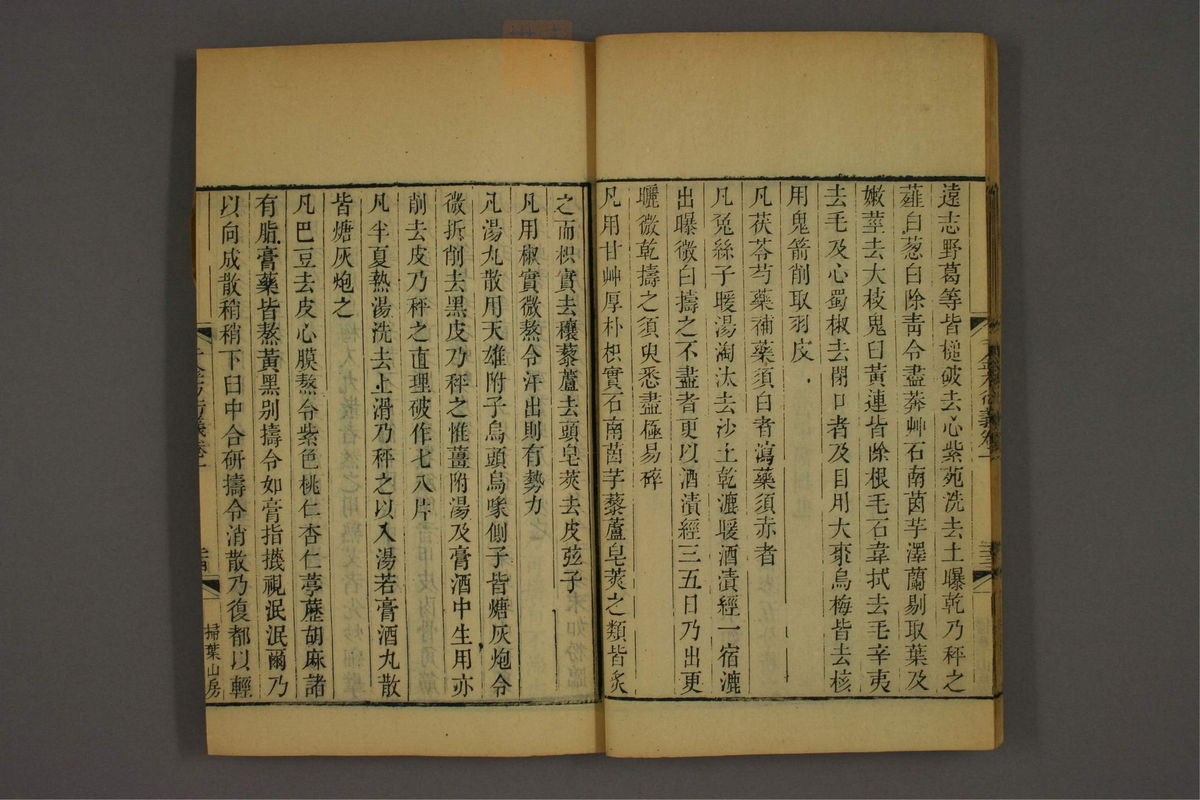 遠志野葛等皆槌破去心紫苑洗去土曝乾乃秤之
薤白葱白除靑令盡莽艸石南茵芋澤蘭剔取葉及
嫩莖去大枝鬼臼黃連皆除根毛石韋拭去毛辛夷
去毛及心蜀椒去閉口者及目用大棗烏梅皆去核
用鬼箭削取羽皮
凡茯苓芍藥補藥須白者瀉藥須赤者
凡兔絲子暖湯淘汰去沙土乾漉暖酒漬經一宿漉
出曝微白擣之不盡者更以酒漬經三五日乃出更
曬微乾擣之須臾悉盡極易碎
凡用甘艸厚朴枳實石南茵芋藜蘆皂莢之類皆炙
之而枳實去穰藜蘆去頭皂莢去皮弦子
凡用椒實微熬令汗出則有勢力
凡湯丸散用天雄附子烏頭烏喙側子皆煻灰炮令
微拆削去黑皮乃秤之惟薑附湯及膏酒中生用亦
削去皮乃秤之直理破作七八片
凡半夏熱湯洗去上滑乃秤之以入湯若膏酒丸散
皆煻灰炮之
凡巴豆去皮心膜熬令紫色桃仁杏仁葶藶胡麻諸
有脂膏藥皆熬黃黑別擣令如膏指㩢視泯泯爾乃
以向成散稍稍下臼中合研擣令消散乃復都以輕
掃葉山房